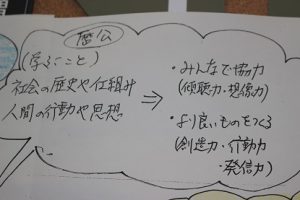 歴公
(学ぶこと)
社会の歴史や仕組み
人間の行動や思想
⇒
・みんなで協力
(傾聴力・想像力)
・より良いものをつくる
(創造力・行動力
・発信力)